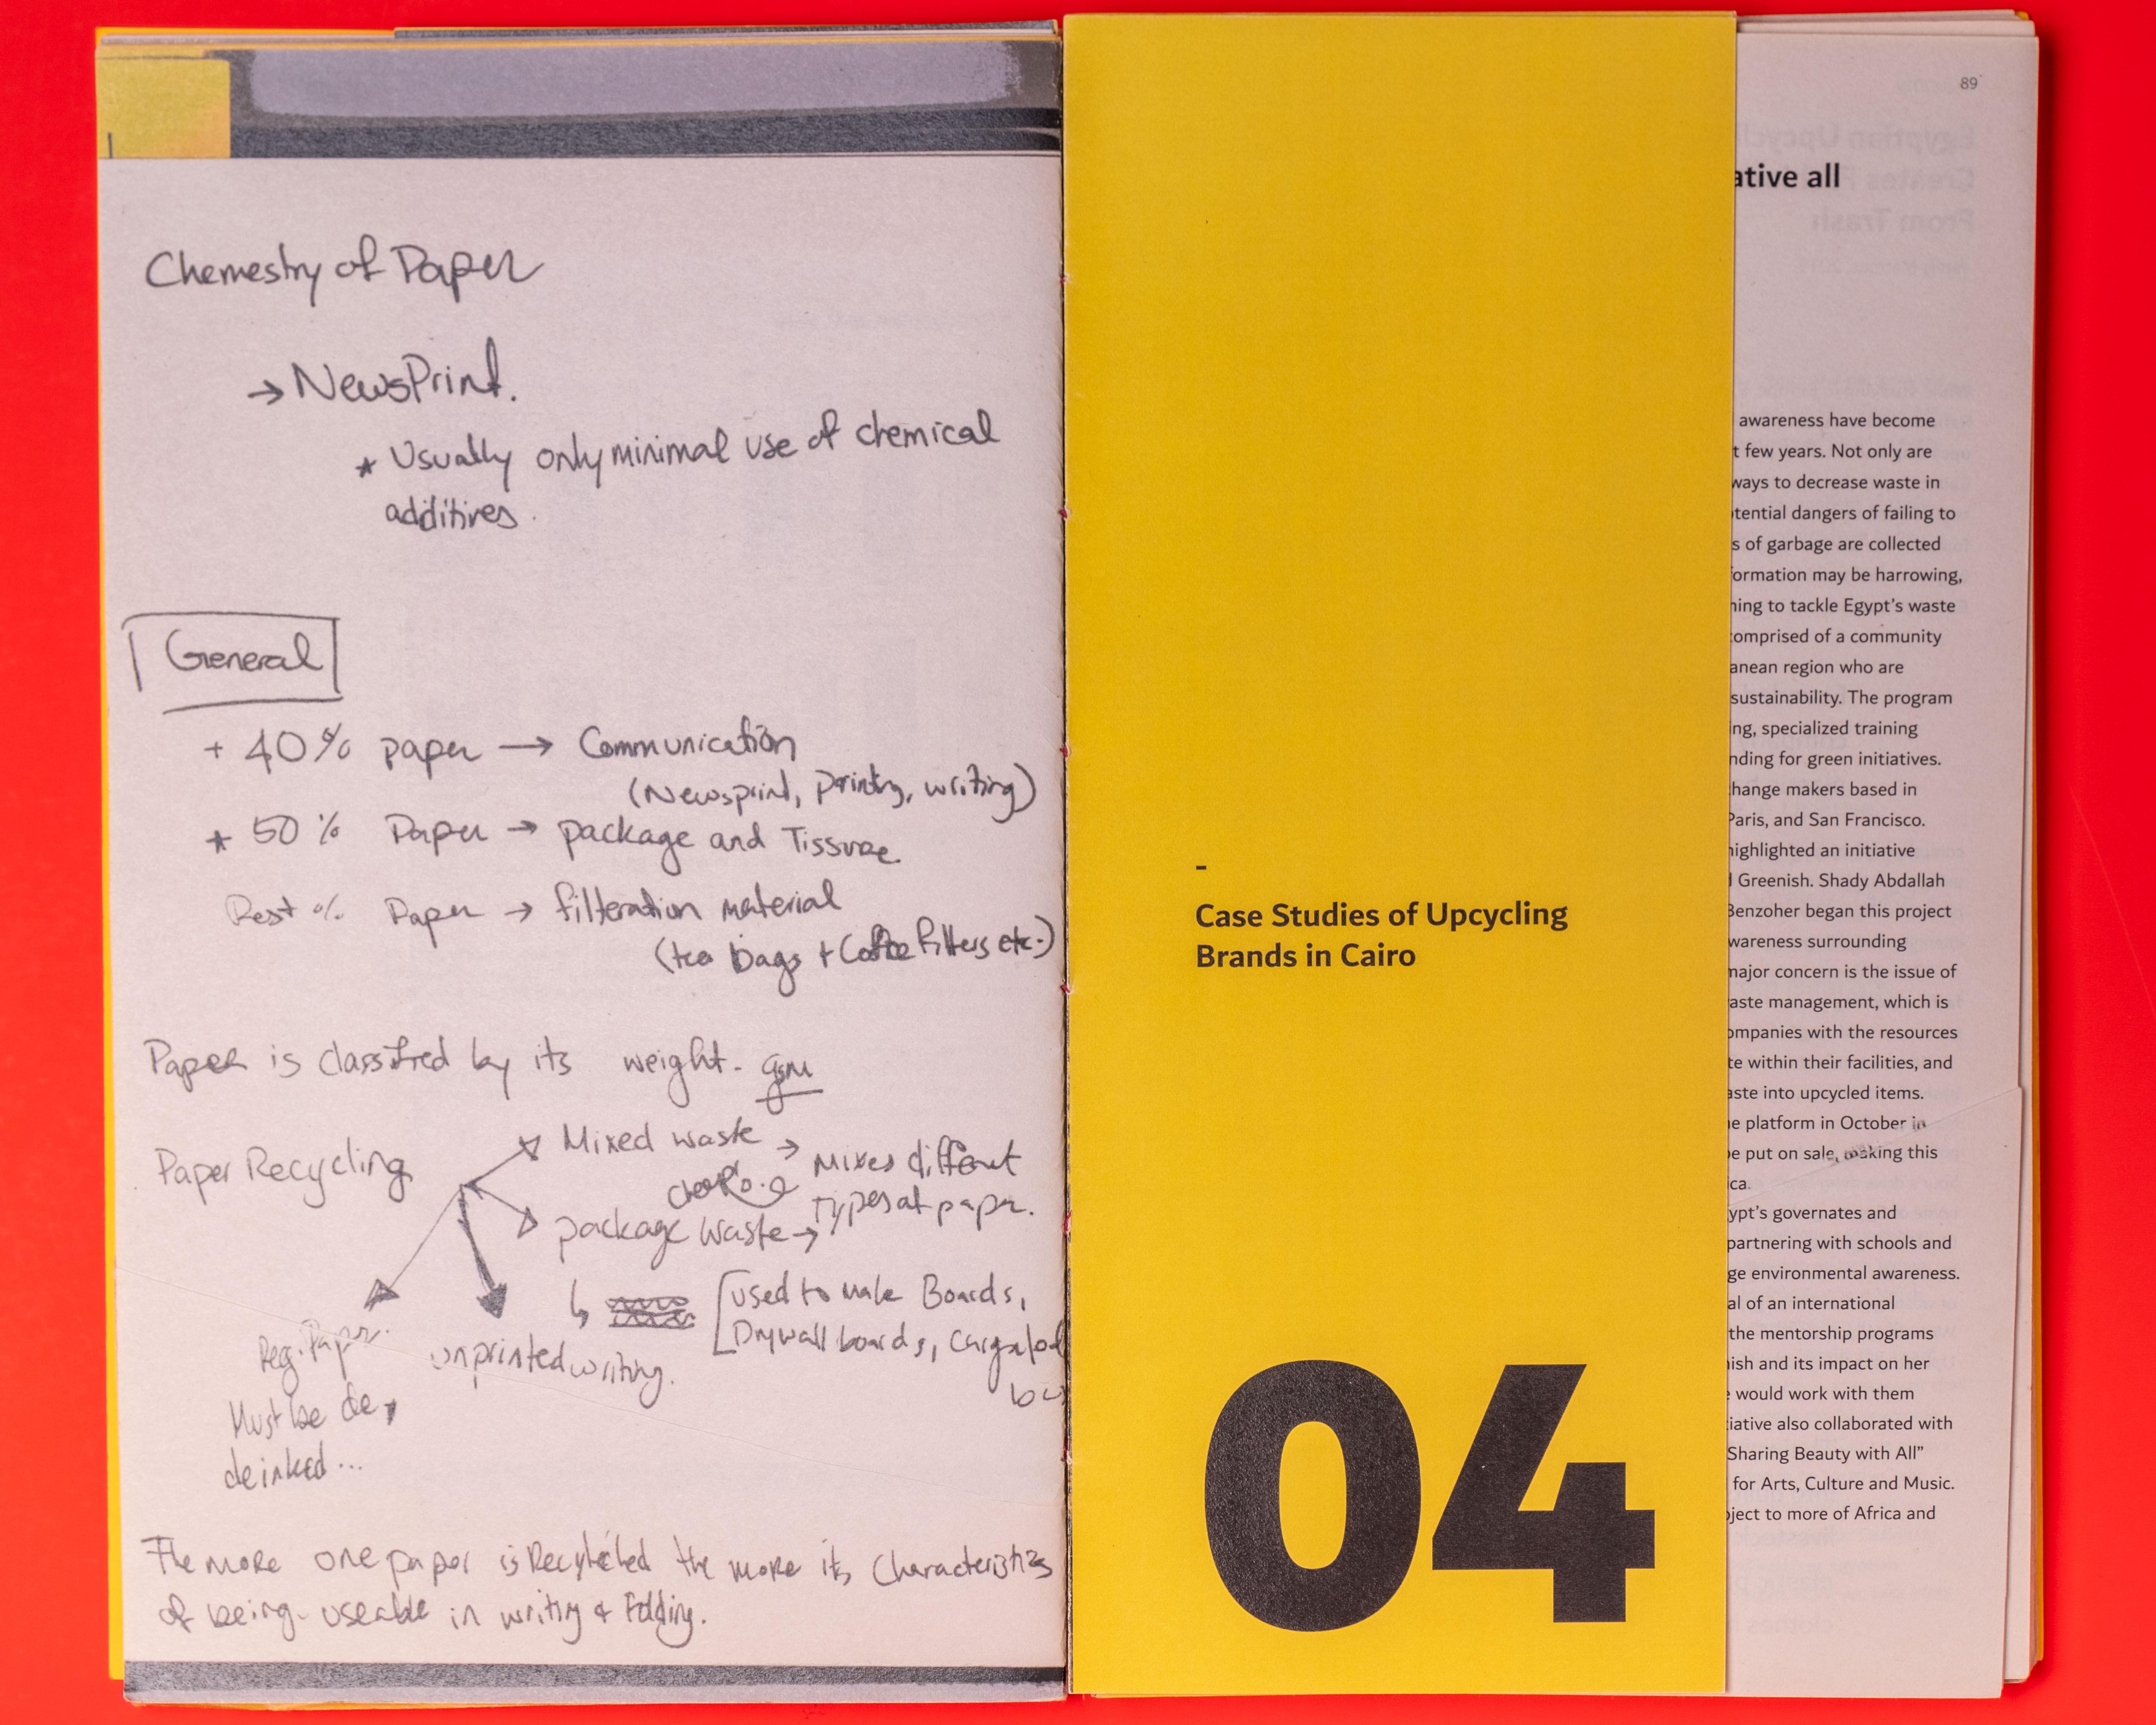 Chemestry of Paper
→ NewsPrint.
* Usually only minimal use of chemical
additives.
General
+ 40% paper → Communication
(Newsprint, printing, writing)
* 50% Paper → package and Tissure
Rest % Paper → filteration material
(tea bags + Coffee filters etc.)
Paper is classified by its weight - gsm
Paper Recycling
Mixed waste →
Mixes different
types of paper.
package waste →
↳ [used to make Boards,
Drywall boards,
Reg. Paper.
Must be de,
deinked...
unprinted writing.
The more one paper is Recyteled the more its Characteristics
of being useable in writing & Folding.
-
Case Studies of Upcycling
Brands in Cairo
04
89
ative all
awareness have become
t few years. Not only are
ways to decrease waste in
tential dangers of failing to
s of garbage are collected
formation may be harrowing,
ning to tackle Egypt's waste
comprised of a community
anean region who are
sustainability. The program
ing, specialized training
nding for green initiatives.
hange makers based in
Paris, and San Francisco.
highlighted an initiative
Greenish. Shady Abdallah
Benzoher began this project
wareness surrounding
major concern is the issue of
aste management, which is
ompanies with the resources
te within their facilities, and
aste into upcycled items.
e platform in October in
e put on sale, making this
ca.
ypt's governates and
partnering with schools and
ge environmental awareness.
al of an international
the mentorship programs
ish and its impact on her
would work with them
iative also collaborated with
Sharing Beauty with All”
for Arts, Culture and Music.
ject to more of Africa and